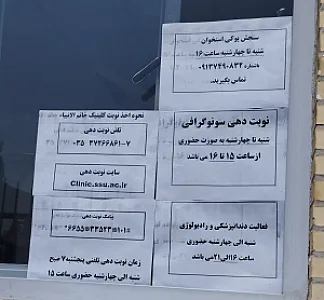 سنجش پوکی استخوان
شنبه تا چهارشنبه ساعت ۱۶
باشماره ۰۹۱۳۷۴۹۰۸۳۲
تماس بگیرید.
نوبت دهی سونوگرافی
شنبه تا چهارشنبه به صورت حضوری
از ساعت ۱۵ تا ۱۶ می باشد
فعالیت دندانپزشکی و رادیولوژی
شنبه الی چهارشنبه حضوری
ساعت ۱۶الی۲۱می باشد
نحوه اخذ نوبت کلینیک خاتم الانبیاء
تلفن نوبت دهی
۰۳۵ ۳۷۲۶۶۸۶۱-۷
سایت نوبت دهی
Clinic.ssu.ac.ir
پیامک نوبت دهی
زمان نوبت دهی تلفنی پنجشنبه۷ صبح
شنبه الی چهارشنبه حضوری ساعت ۱۵